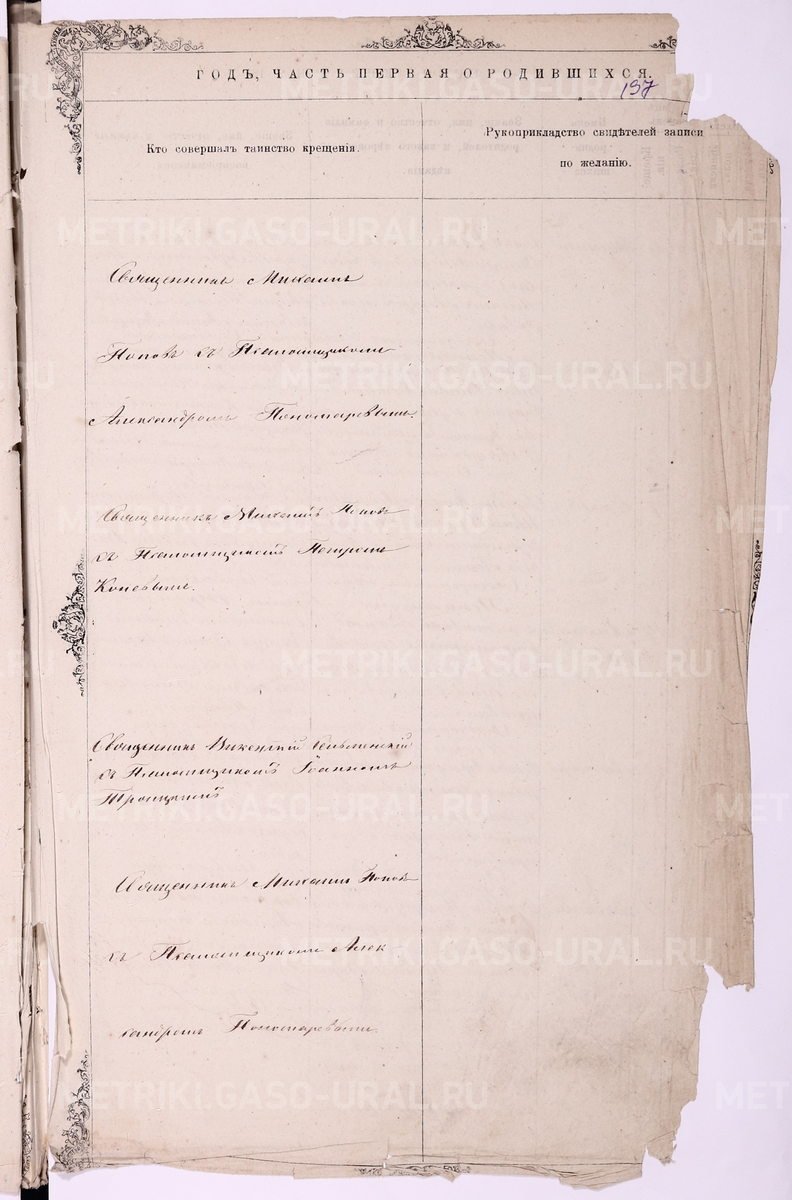 ГОДЪ, ЧАСТЬ ПЕРВАЯ О РОДИВШИХСЯ.
197
Кто совершалъ таинство крещенія.
Рукоприкладство свидѣтелей записи
по желанію.
Священникъ Михаилъ
Поповъ съ Псаломщикомъ
Александромъ Пономаревымъ.
Священникъ Михаилъ Поповъ
съ Псаломщикомъ Петромъ
Коневымъ.
Священникъ Викентій
съ Псаломщикомъ Іоанномъ
Троицкимъ
Священникъ Михаилъ Поповъ
съ Псаломщикомъ Алек
сандромъ Пономаревымъ.
METRIKI.GASO-URAL.RU